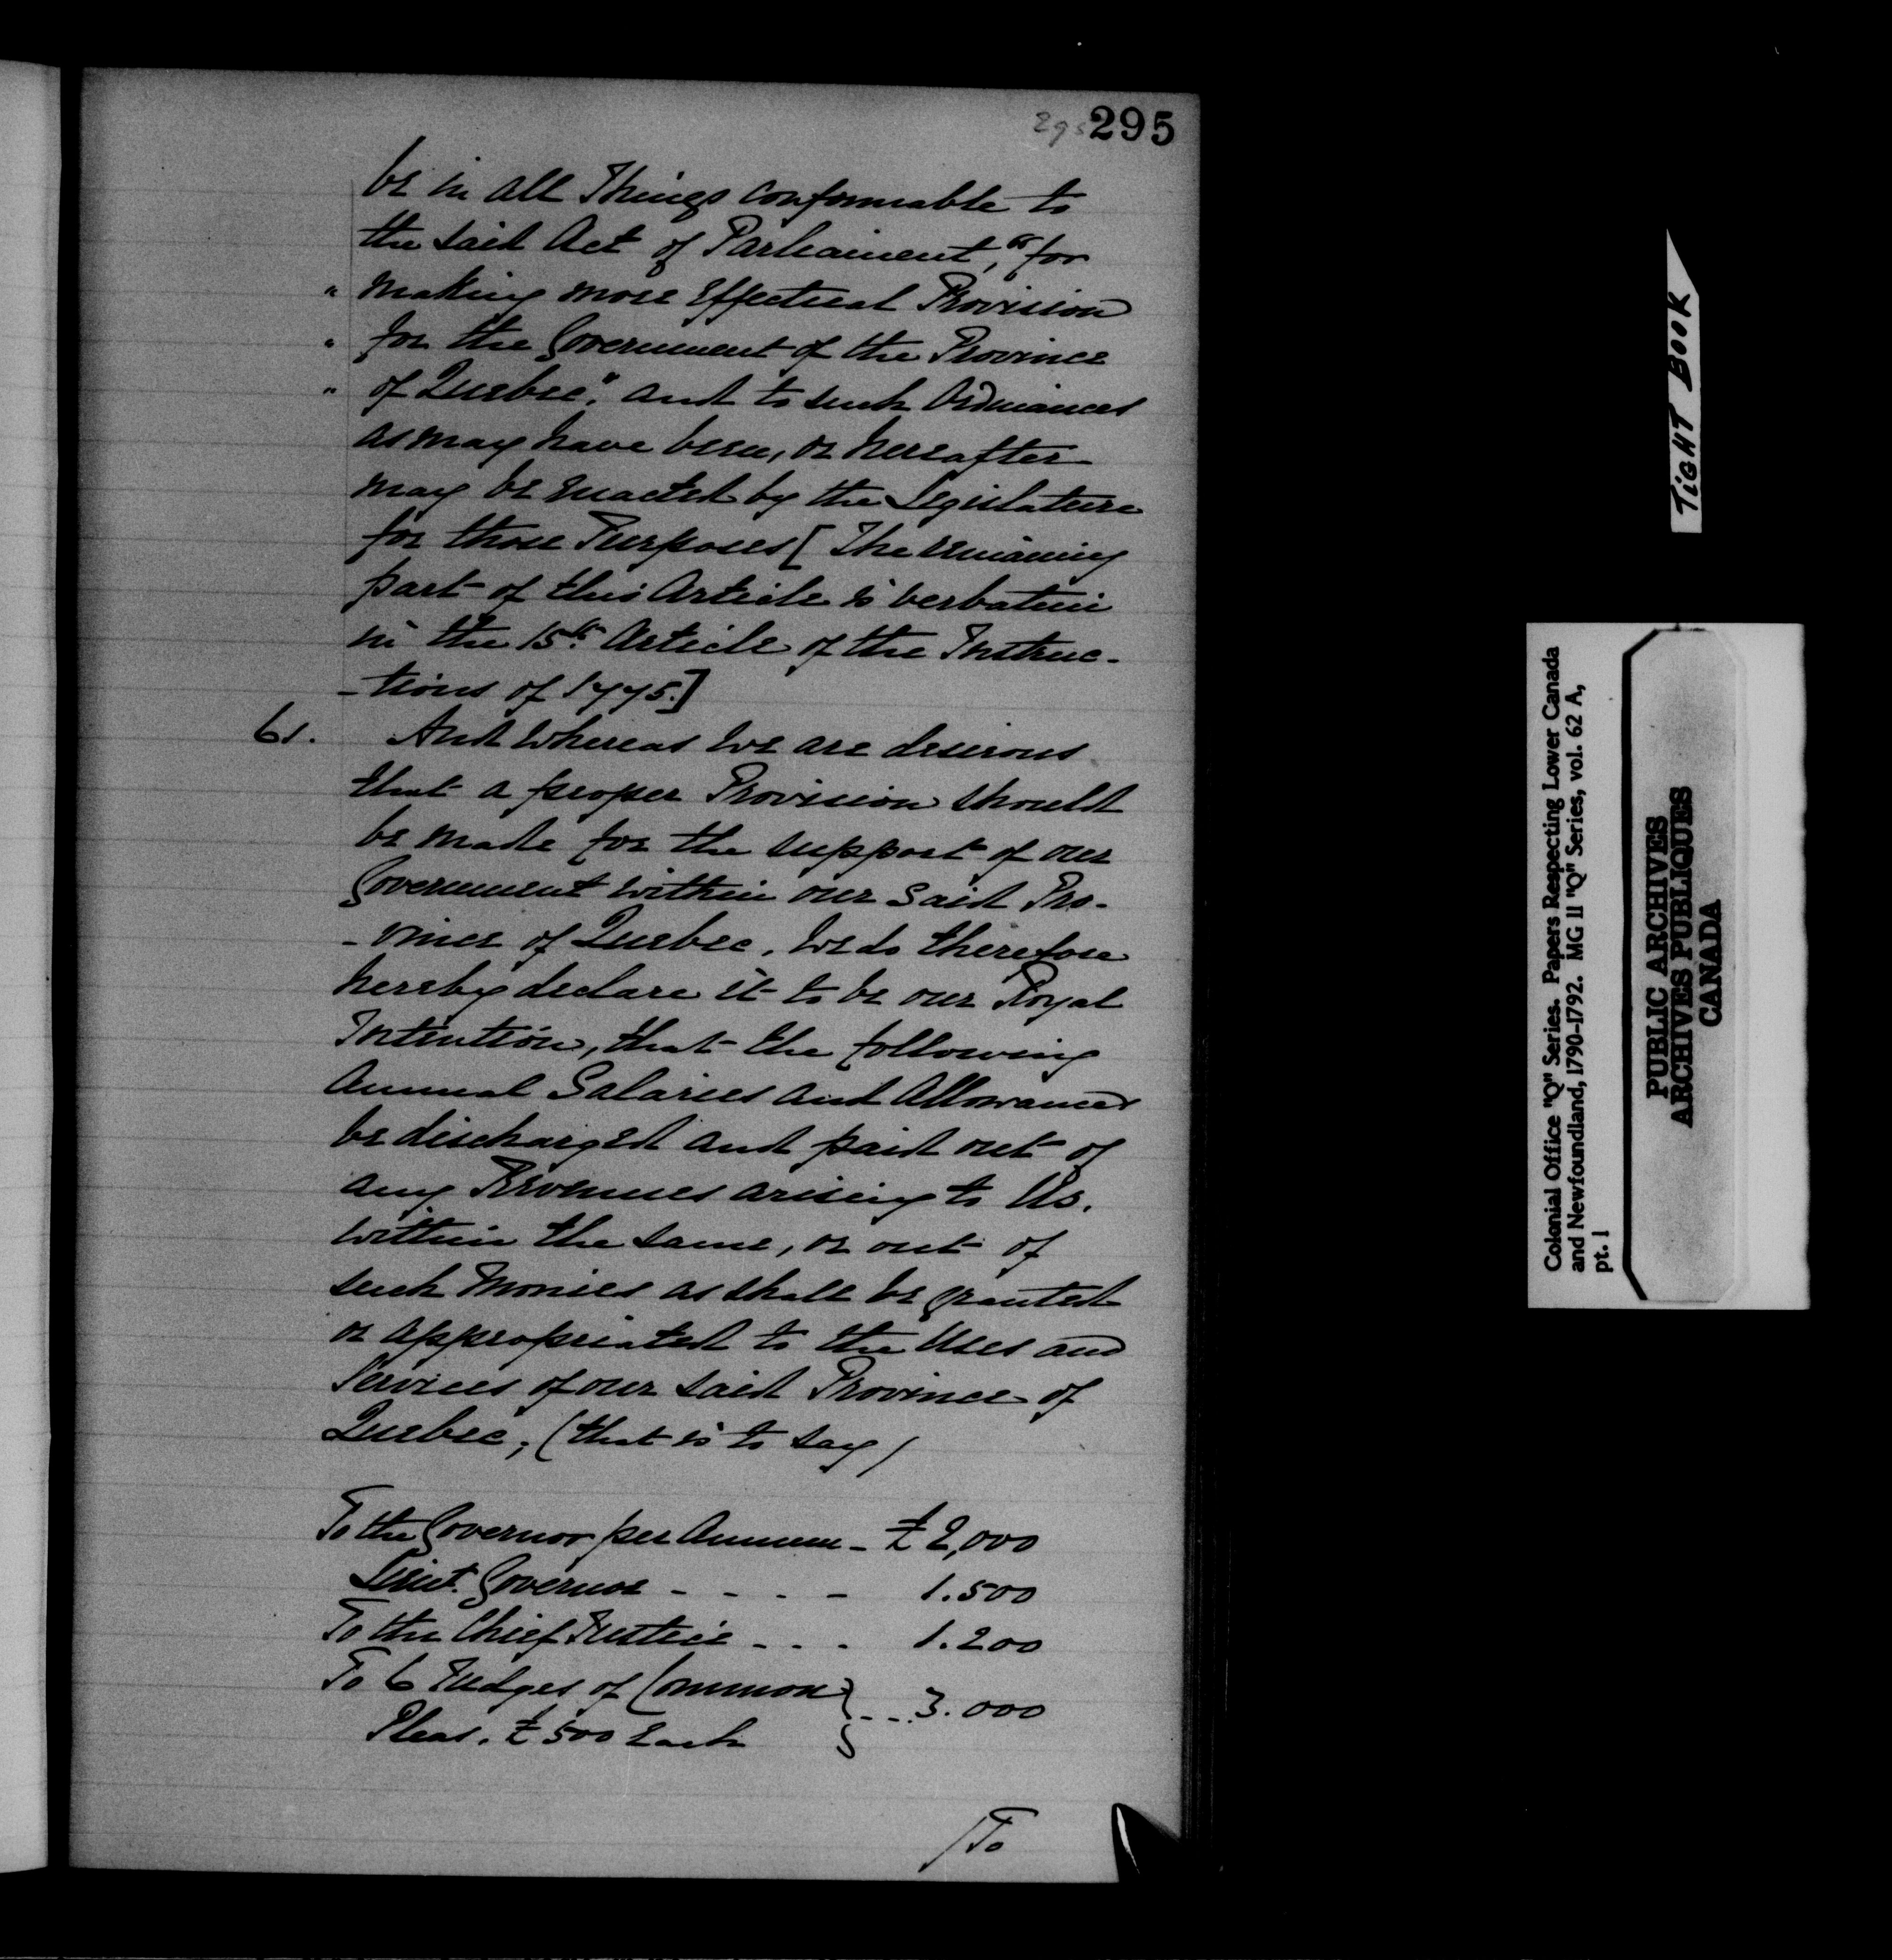 295 295
be in all Things conformable to
the said Act of Parliament, "for
" making more Effectual Provision
" for the Government of the Province
" of Quebec," and to such Ordinances
as may have been, or hereafter
may be enacted by the Legislature
for those Purposes [The remaining
part of this Article is verbatim
in the 15th Article of the Instruc-
-tions of 1775.]
61. And whereas we are desirous
that a proper Provision should
be made for the support of our
Government within our said Pro-
-vince of Quebec. We do therefore
hereby declare it to be our Royal
Intention, that the following
Annual Salaries and Allowances
be discharged and paid out of
any Revenues arising to Us.
within the same, or out of
such Monies as shall be granted
or appropriated to the Uses and
Services of our said Province of
Quebec; (that is to say)
To the Governor per Annum - £2,000
Lieut. Governor - - - - 1.500
To the Chief Justice - - - 1.200
To 6 Judges of Common } - - - 3.000
Pleas. £500 Each
/To
TIGHT BOOK
Colonial Office "Q" Series. Papers Respecting Lower Canada
and Newfoundland, 1790-1792. MG 11 "Q" Series, vol. 62 A,
pt. 1
PUBLIC ARCHIVES
ARCHIVES PUBLIQUES
CANADA